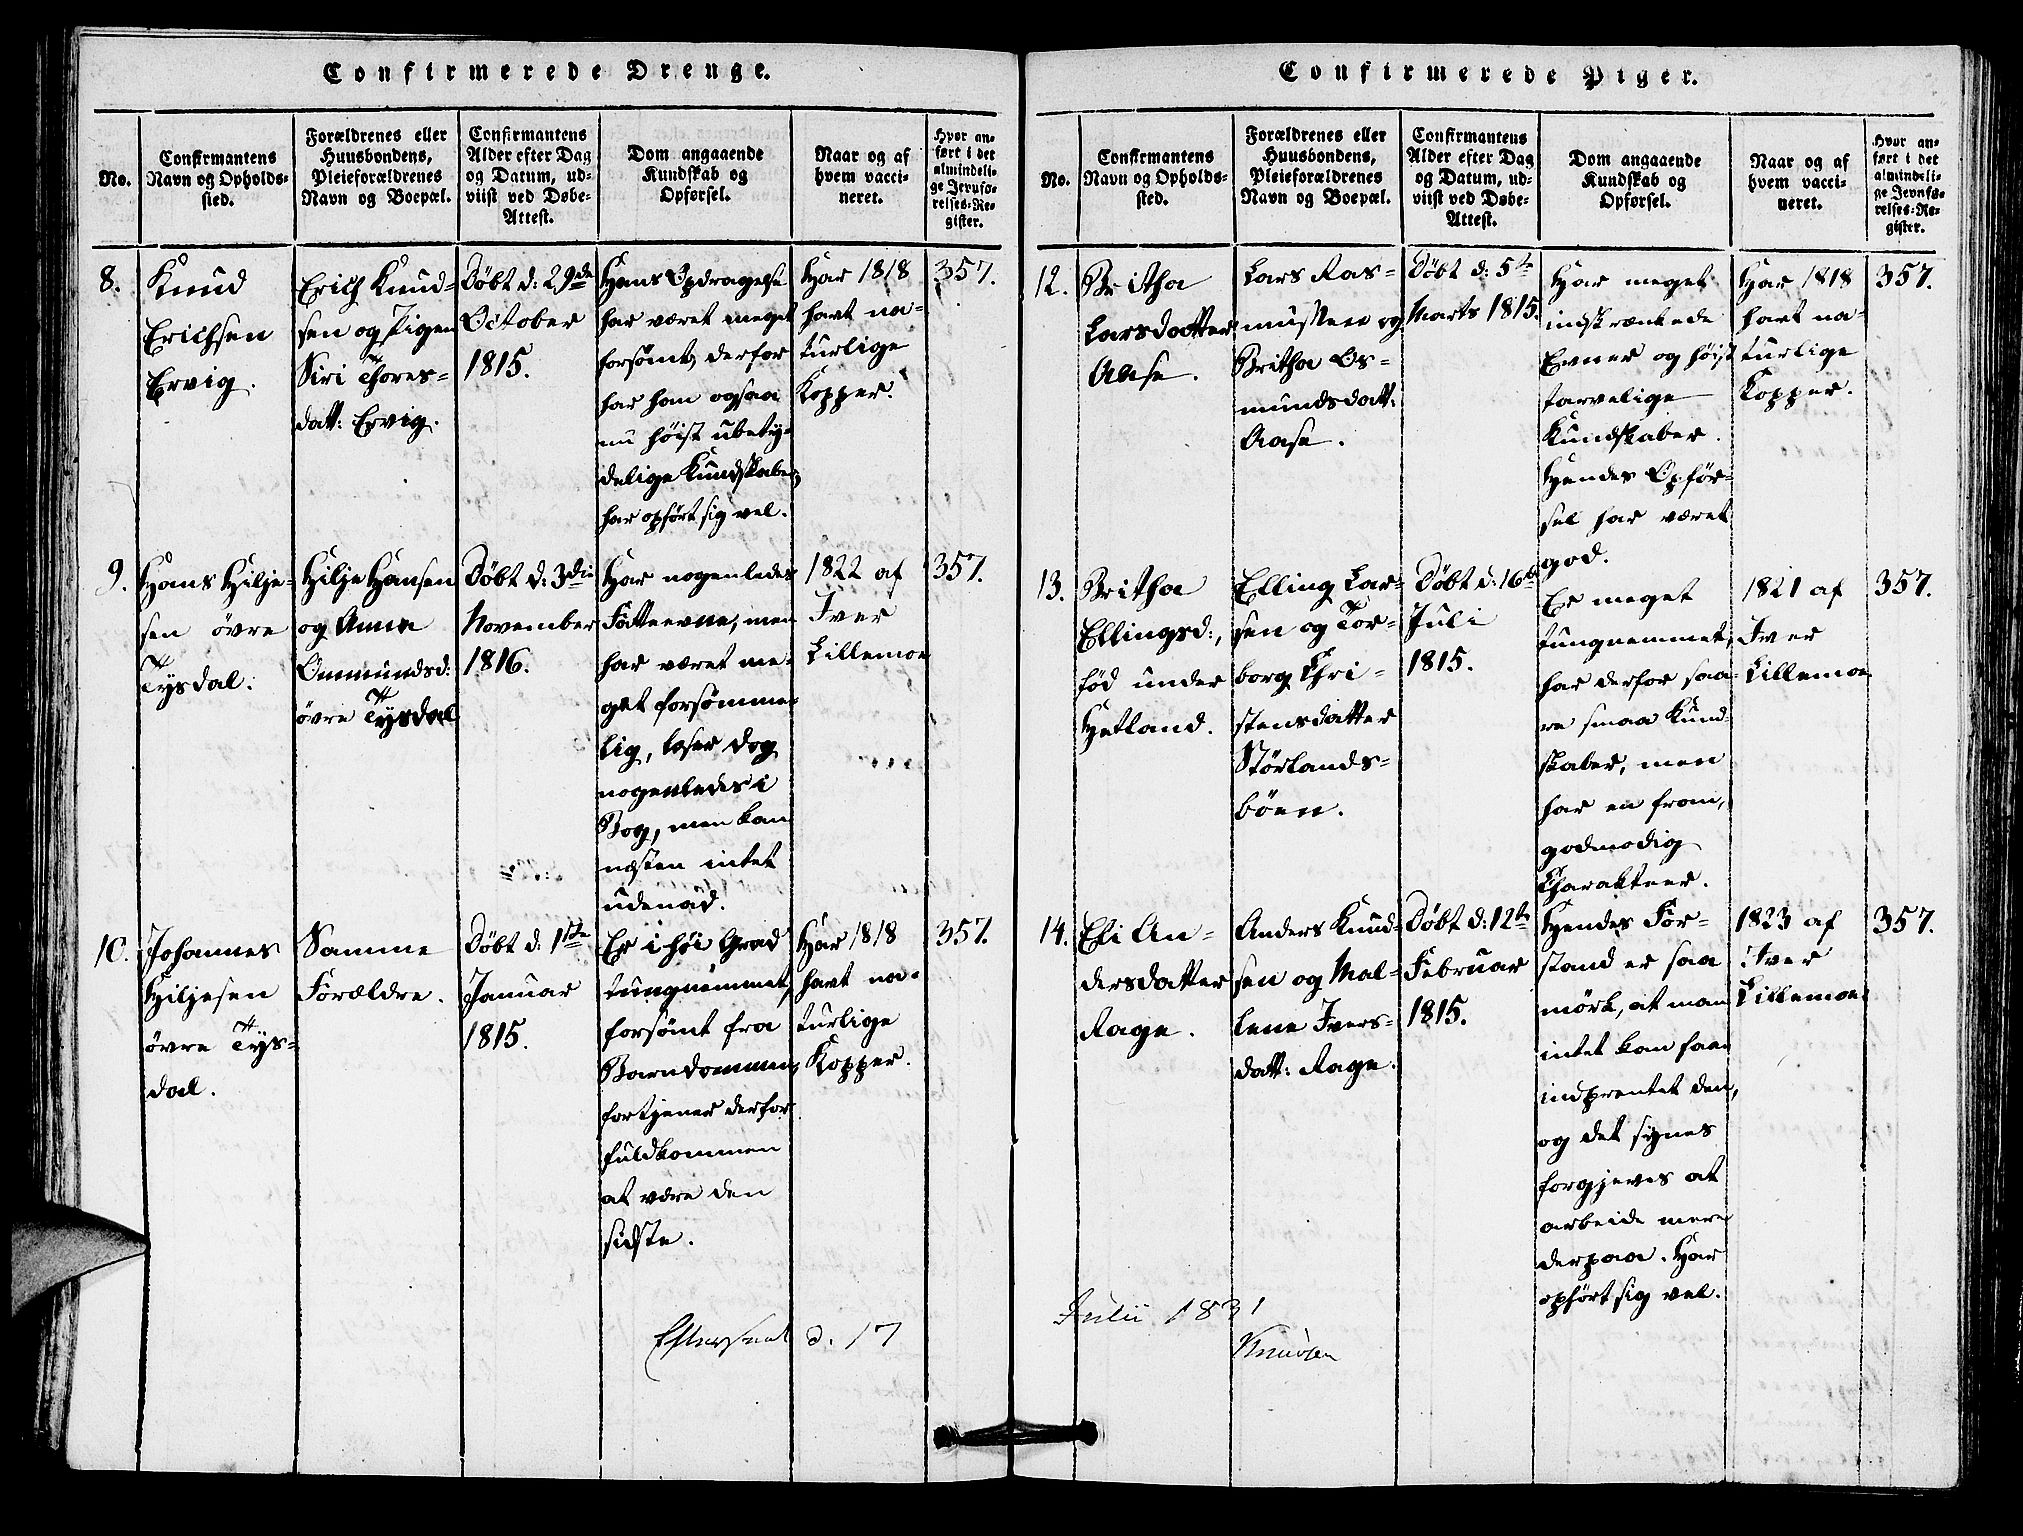 Confirmerede Drenge.
No.
Confirmantens
Navn og Opholds-
sted.
Forældrenes eller
Huusbondens,
Pleieforældrenes
Navn og Boepæl.
Confirmantens
Alder efter Dag
og Datum, ud-
viist ved Døbe-
Attest.
Dom angaaende
Kundskab og
Opførsel.
Naar og af
hvem vacci-
neret.
Hvor an-
ført i det
almindeli-
ge Jevnfø-
relses-Re-
gister.
8.
Knud
Erichsen
Ervig.
Erich Knud-
sen og Pigen
Siri Thores-
datt: Ervig.
Døbt d: 29de
October
1815.
Hans Opdragelse
har været meget
forsømt, derfor
har han ogsaa
nu høist ubety-
delige Kundskaber,
har opført sig vel.
Har 1818
havt na-
turlige
Kopper.
357.
9.
Hans Hilje-
sen øvre
Tysdal.
Hilje Hansen
og Anna
Ommundsd:
øvre Tysdal
Døbt d: 3die
November
1816.
Har nogenledes
Fatteevne, men
har været me-
get forsømme-
lig, læser dog
nogenledes i
Bog, men kan
næsten intet
udenad.
1822 af
Iver
Lillemoe
357.
10.
Johannes
Hiljesen
øvre Tys-
dal.
Samme
Forældre.
Døbt d: 1ste
Januar
1815.
Er i høi Grad
tungnemmet,
forsømt fra
Barndommen,
fortjener derfor
fuldkommen
at være den
sidste.
Har 1818
havt na-
turlige
Kopper.
357.
Efterseet d. 17
Confirmerede Piger.
No.
Confirmantens
Navn og Opholds-
sted.
Forældrenes eller
Huusbondens,
Pleieforældrenes
Navn og Boepæl.
Confirmantens
Alder efter Dag
og Datum, ud-
viist ved Døbe-
Attest.
Dom angaaende
Kundskab og
Opførsel.
Naar og af
hvem vacci-
neret.
Hvor an-
ført i det
almindeli-
ge Jevnfø-
relses-Re-
gister.
12.
Britha
Larsdatter
Aase.
Lars Ras-
mussen og
Britha Os-
mundsdatt:
Aase.
Døbt d: 5te
Marts 1815.
Har meget
indskrænkede
Evner og høist
tarvelige
Kundskaber.
Hendes Opfør-
sel har været
god.
Har 1818
havt na-
turlige
Kopper.
357.
13.
Britha
Ellingsd:,
fød under
Hetland.
Elling Lar-
sen og Tor-
borg Chri-
stensdatter
Størlands-
bøen.
Døbt d: 16de
Juli
1815.
Er meget
tungnemmet,
har derfor saa-
re smaa Kund-
skaber, men
har en from,
godmodig
Charakteer.
1821 af
Iver
Lillemoe
357.
14.
Eli An-
dersdatter
Rage.
Anders Knud-
sen og Mal-
lene Ivers-
datt: Rage.
Døbt d: 12te
Februar
1815.
Hendes For-
stand er saa
mørk, at man
intet kan faae
indprentet den,
og det synes
forgjeves at
arbeide mere
derpaa. Har
opført sig vel.
1823 af
Iver
Lillemoe
357.
Julii 1831
Knudsen